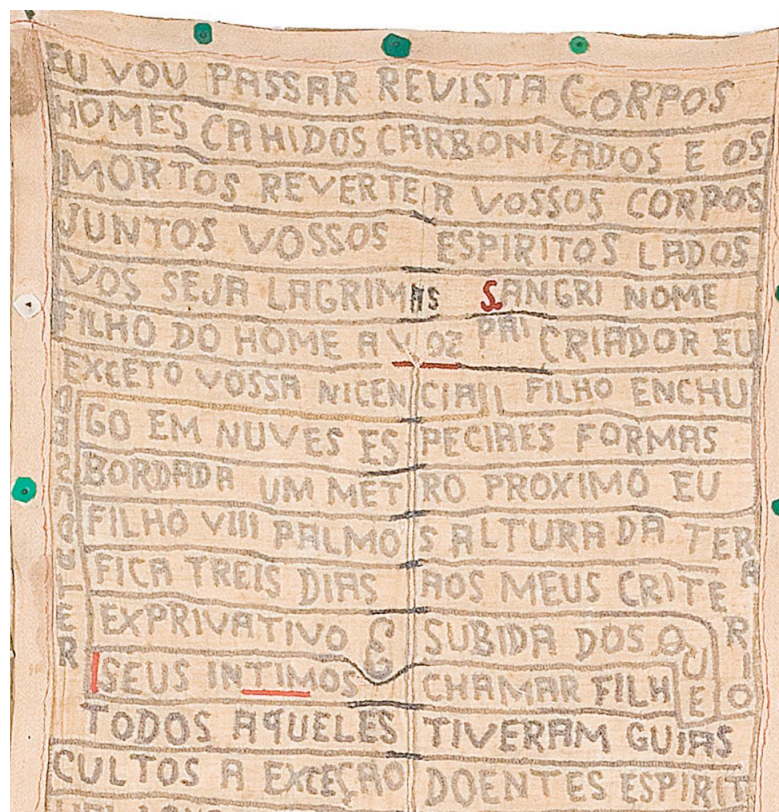 EU VOU PASSAR REVISTA CORPOS
HOMES CAHIDOS CARBONIZADOS E OS
MORTOS REVERTER VOSSOS CORPOS
JUNTOS VOSSOS ESPIRITOS LADOS
VOS SEJA LAGRIMAS SANGRI NOME
FILHO DO HOME A VOZ PAI CRIADOR EU
EXCETO VOSSA NICENCIA II FILHO ENCHU
GO EM NUVES ESPECIAES FORMAS
BORDADA UM METRO PROXIMO EU
FILHO VIII PALMOS ALTURA DA TERRA
FICA TREIS DIAS AOS MEUS CRITERIO
EXPRIVATIVO E SUBIDA DOS QUE
SEUS INTIMOS CHAMAR FILH
TODOS AQUELES TIVERAM GUIAS
CULTOS A EXCEÇÃO DOENTES ESPIRIT